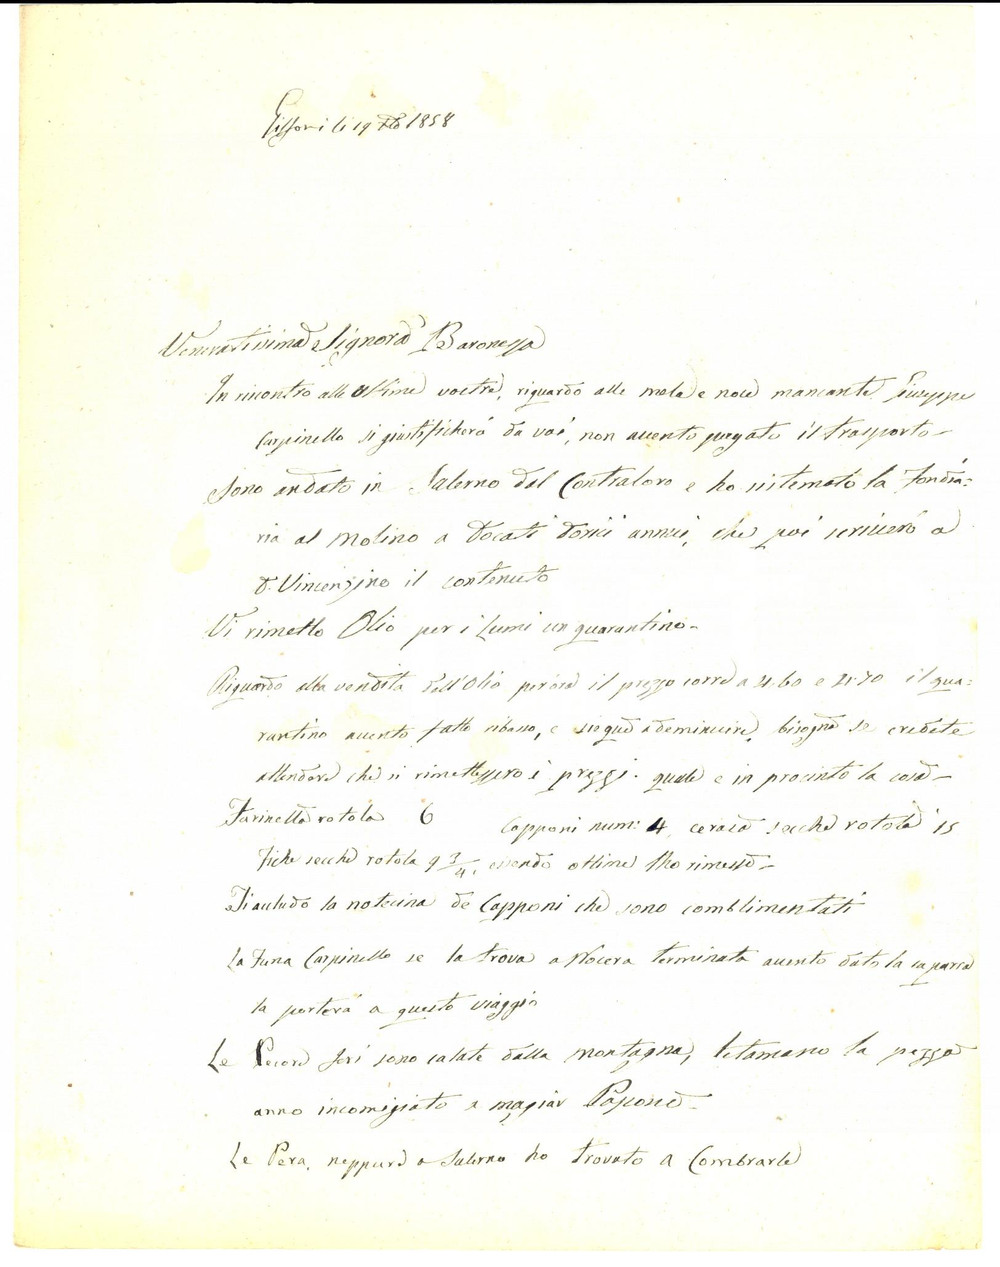 Giffoni li 19 1858
Venerantissima Signora Baronessa
In riscontro alle ottime vostre, riguardo alle mela e noce mancante Giuseppe
Carpinello si giustificherà da voi, non avento pregato il trasporto-
Sono andato in Salerno dal Contraloro e ho sistemato la Fondia-
ria al Molino a Docati annui, che poi scriverò a
D. Vincenzino il contenuto
Vi rimetto Olio per i Lumi un quarantino-
Riguardo alla vendita dell'Olio il prezzo corre a 4.60 e 4.70 il qua-
rantino avento fatto ribasso, e siegue a deminuire, bisogna se credete
attendere che si rimettessero i prezzi. quale e in procinto la cosa-
Farinella rotola 6 Capponi num: 4, cerasa secche rotola 15
Fiche secche rotola 9 3/4, essendo ottime l'ho rimesse-
la notecina de Capponi che sono comblimentati
La Funa Carpinello se la trova a Nocera terminata avento dato la caparra
la porterà a questo viaggio
Le Pecore Jeri sono calate dalla montagna, letamano la pezza
anno incomigiato a
Le Pera, neppure a Salerno ho trovato a Combrarle